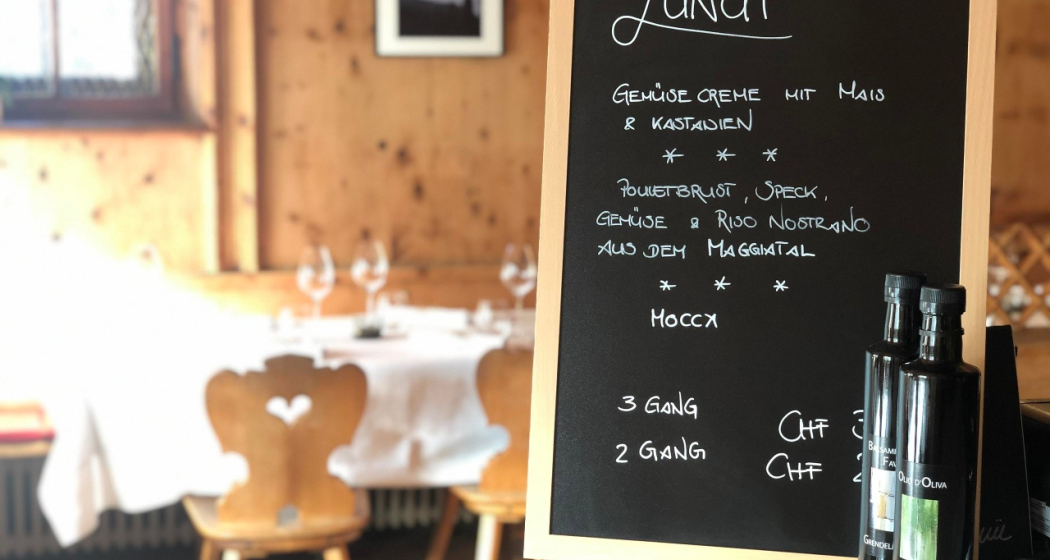 Lunch
Gemüsecreme mit Mais
& Kastanien
* * *
Pouletbrust, Speck,
Gemüse & Riso Nostrano
aus dem Maggiatal
* * *
Mocca
3 Gang
CHF 3
2 Gang
CHF 2
Olio d'Oliva